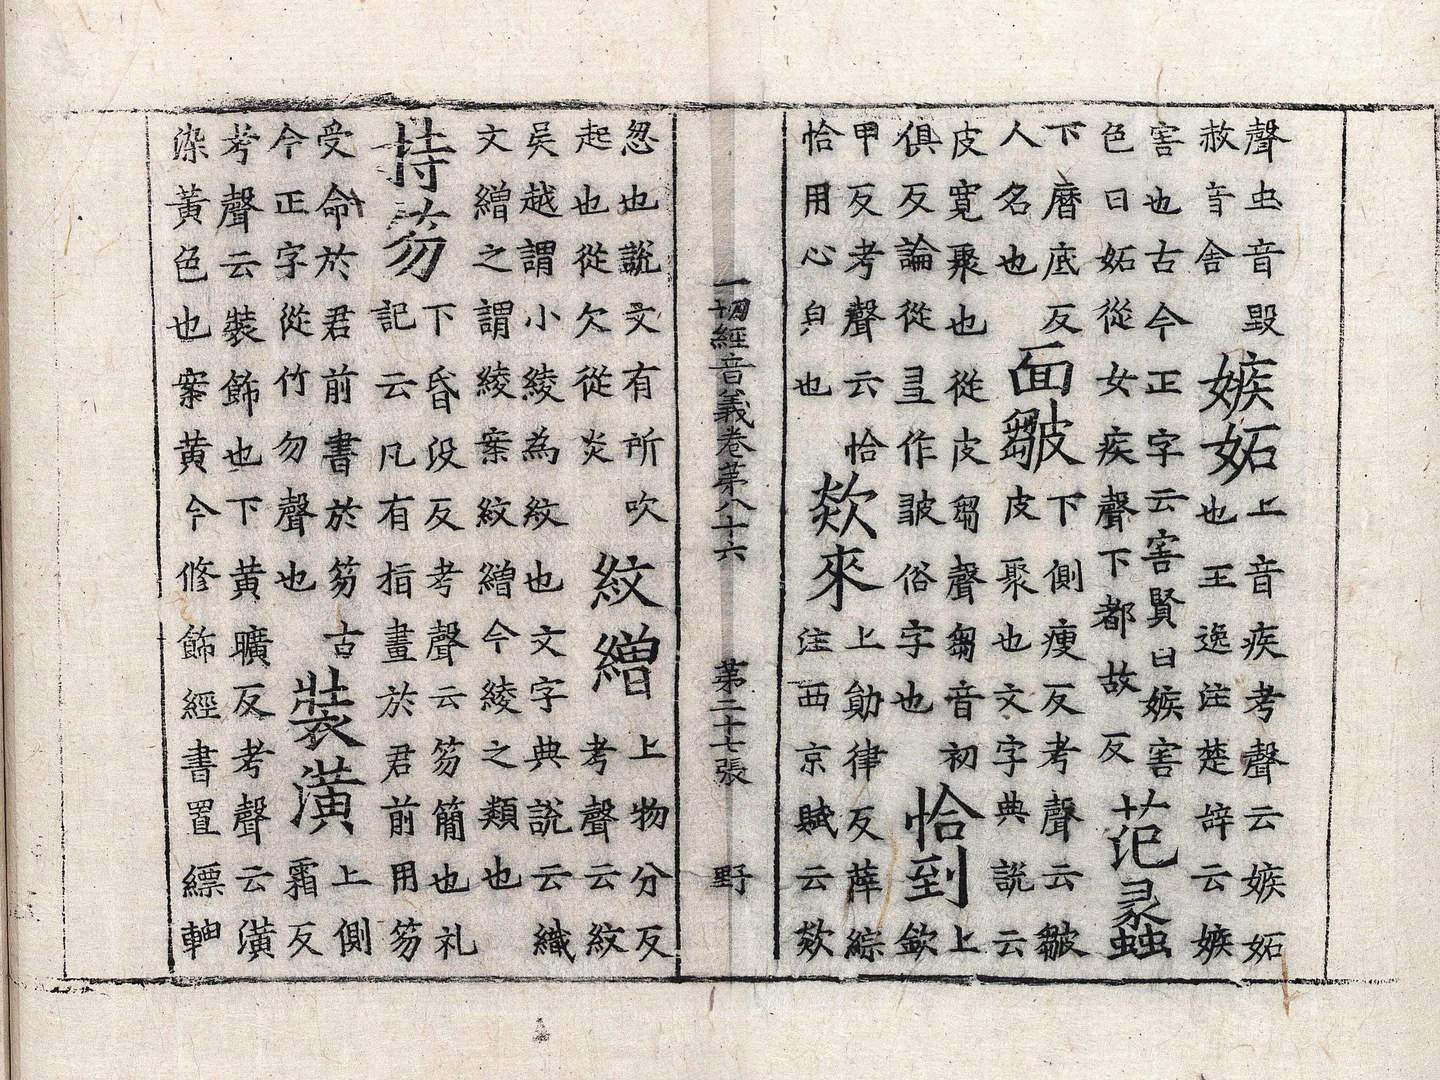 聲虫音毀
赦音舍
嫉妬
上音疾考聲云嫉妬
也王逸注楚辭云嫉
害也古今正字云害賢曰嫉害
色曰妬從女疾聲下都故反
范蠡
下曆底反
人名也
面皺
下側瘦反考聲云皺
皮聚也文字典說云
皮寬聚也從皮芻聲芻音初
俱反論從作皺俗字也
恰到
上
欽
甲反考聲云恰
恰用心自也
欻來
上勛律反薛綜
注西京賦云欻
一切經音義卷第八十六 第二十七張 野
忽也說文有所吹
起也從欠從炎
紋繒
上物分反
考聲云紋
吳越謂小綾為紋也文字典說云織
文繒之謂綾案紋繒今綾之類也
持笏
下昏沒反考聲云笏簡也礼
記云凡有指畫於君前用笏
受命於君前書於笏古
今正字從竹勿聲也
裝潢
上側
霜反
考聲云裝飾也下黃曠反考聲云潢
染黃色也案黃今修飾經書置縹軸